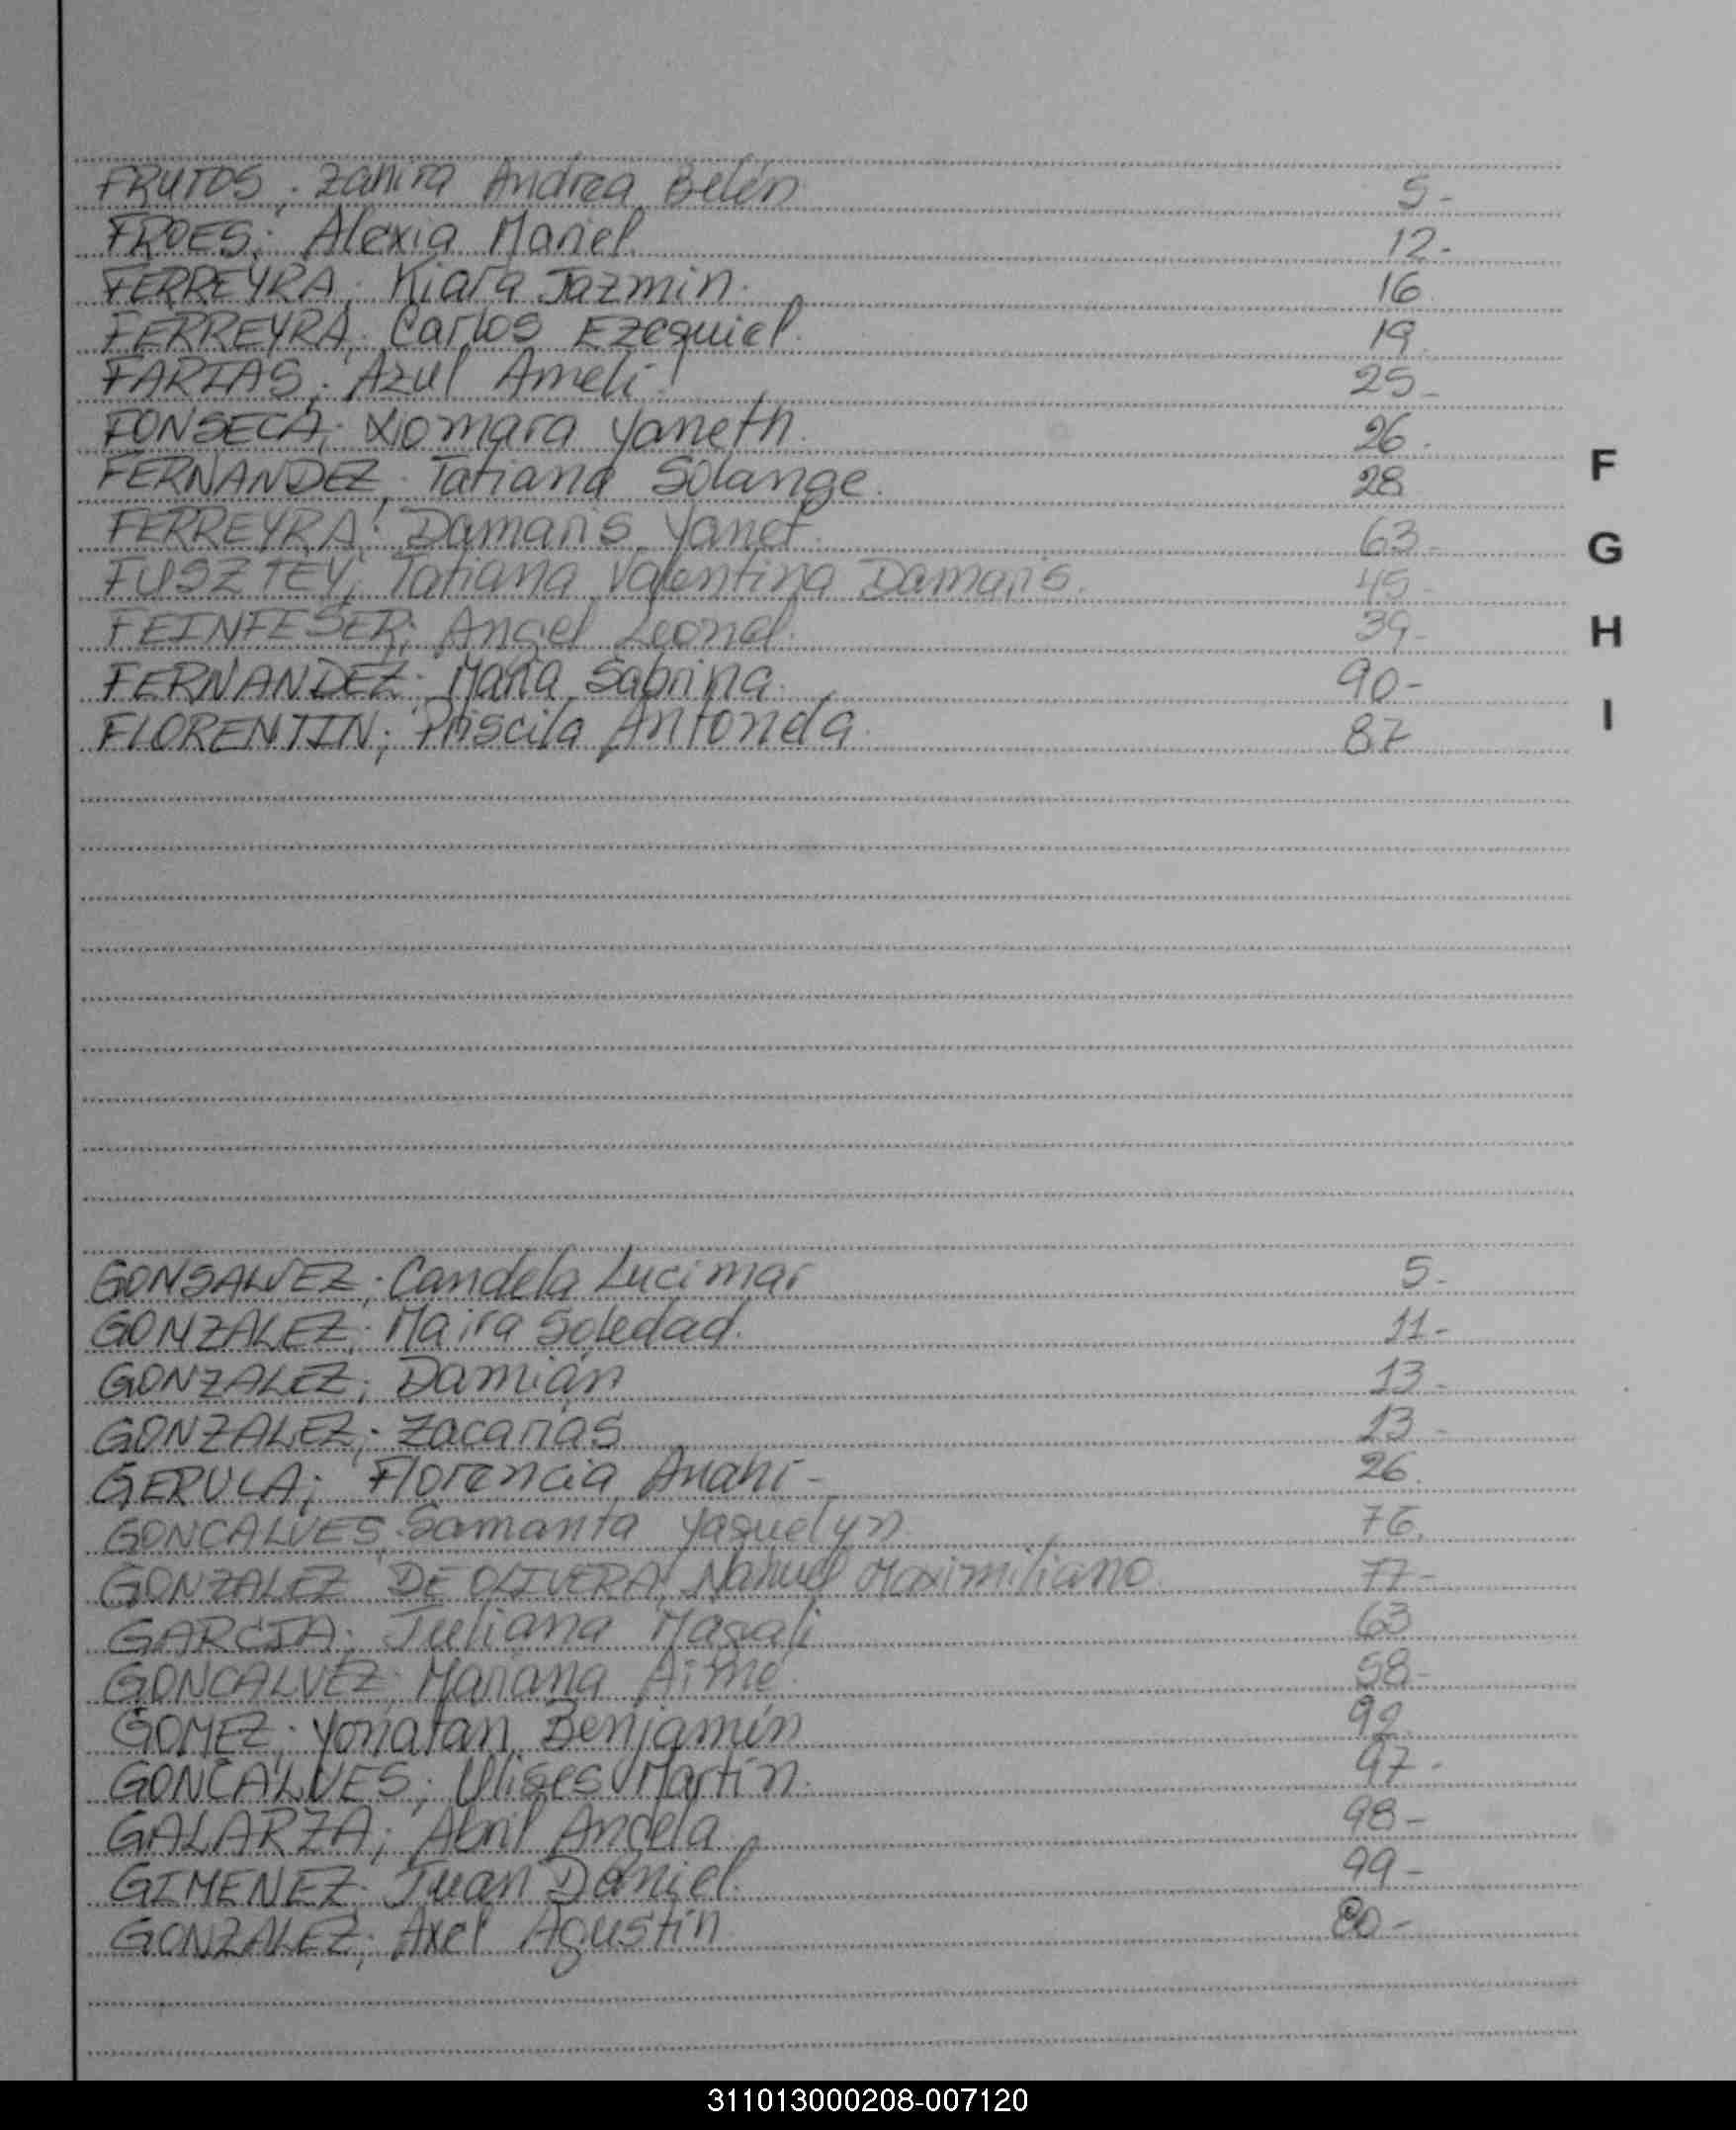 FRUTOS; Zahira Andrea Belén 5-
FROES; Alexia Mariel 12-
FERREYRA; Kiara Jazmin. 16
FERREYRA; Carlos Ezequiel. 19
FARIAS; Azul Ameli! 25-
FONSECA; Xiomara Yaneth. 26.
FERNANDEZ; Tatiana Solange. 28
F
FERREYRA; Damaris Yanet. 63-
G
FUSZTEY; Tatiana Valentina Damaris. 45-
FEINFESER; Angel Leonel. 39-
H
FERNANDEZ; María Sabrina. 90-
FLORENTIN; Priscila Antonela. 87
I
GONSALVEZ; Candela Lucimar 5-
GONZALEZ; Maira Soledad. 11-
GONZALEZ; Damián 13-
GONZALEZ; Zacarías 13-
GERULA; Florencia Anahí- 26.
GONCALVES; Samanta Yaquelyn 76.
GONZALEZ DE OLIVERA; Nahuel Maximiliano. 77-
GARCIA; Juliana Magali 63
GONCALVEZ; Mariana Aimé. 58-
GOMEZ; Yonatan Benjamín 92.
GONCALVES; Ulises Martín. 97-
GALARZA; Abril Angela 98-
GIMENEZ; Juan Daniel. 99-
GONZALEZ; Axel Agustín 80-
311013000208-007120